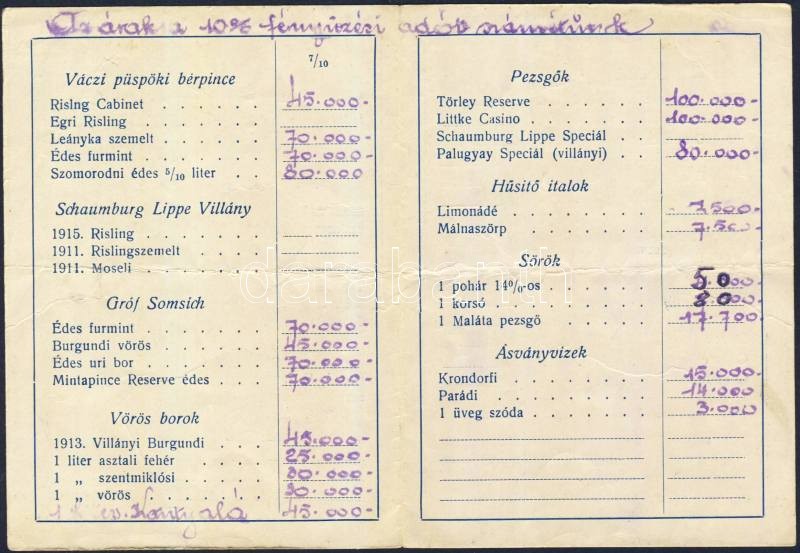 Az árak a 10% fényüzési adót számitunk
7/10
Váczi püspöki bérpince
Rislng Cabinet . . . . . . 45.000-
Egri Risling . . . . . . .
Leányka szemelt . . . . . 70.000-
Édes furmint . . . . . . 70.000-
Szomorodni édes 5/10 liter . . 80.000
Schaumburg Lippe Villány
1915. Risling . . . . . .
1911. Rislingszemelt . . . .
1911. Moseli . . . . . . .
Gróf Somsich
Édes furmint . . . . . . 70.000-
Burgundi vörös . . . . . 45.000-
Édes uri bor . . . . . . 70.000-
Mintapince Reserve édes . . . 70.000-
Vörös borok
1913. Villányi Burgundi . . . . 45.000-
1 liter asztali fehér . . . . 25.000-
1 „ szentmiklósi . . . . 30.000-
1 „ vörös . . . . . 30.000-
45.000-
Pezsgők
Törley Reserve . . . . . . 100.000-
Littke Casino . . . . . . 100.000-
Schaumburg Lippe Speciál . .
Palugyay Speciál (villányi) . . 80.000-
Hűsitő italok
Limonádé . . . . . . . 7500-
Málnaszörp . . . . . . 7.500-
Sörök
1 pohár 14%-os . . . . . 5.000
1 korsó . . . . . . . 8000
1 Maláta pezsgő . . . . . 17.700
Ásványvizek
Krondorfi . . . . . . . 15.000-
Parádi . . . . . . . . 14.000
1 üveg szóda . . . . . . 3.000
darabanth